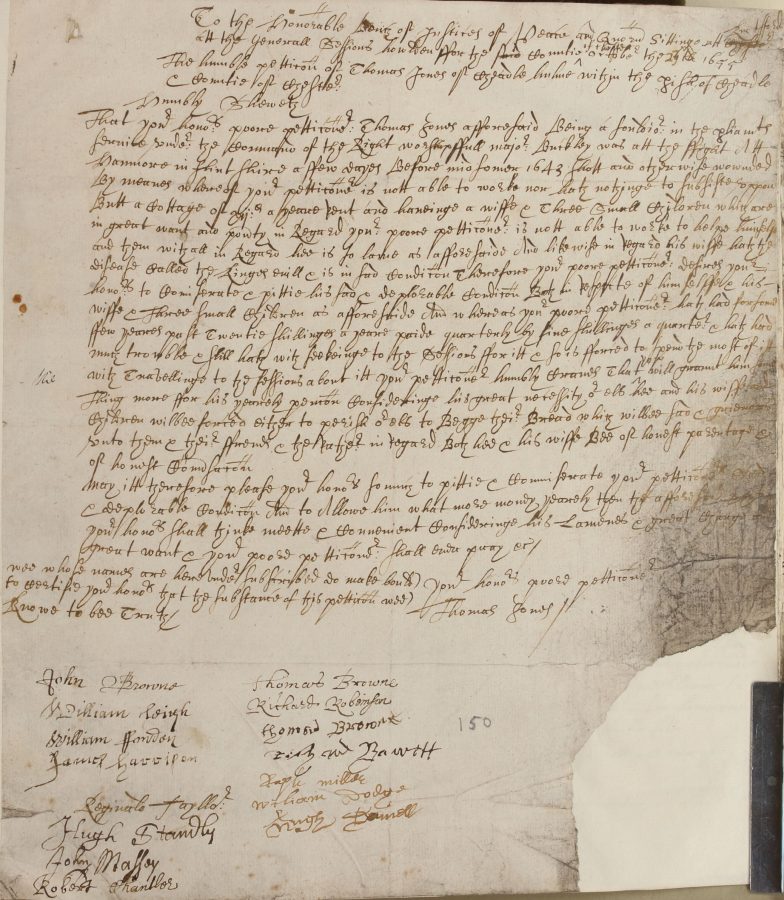 To the Honorable Bench of Justices of Peace and Quoru Sittinge att
att the Generall Sessions houlden ffor the said Countie October the 1655
The humble petticon of Thomas Jones of Cheadle hulme within the pish of Cheadle
& Countie of Chester
Humbly Sheweth
That yor honors poore petticonr Thomas Jones afforesaid Being a souldior in the pliamts
service under the Command of the Right worshipffull major Buckley was att the ffight Att
Hanmore in fflint shire a ffew dayes Before midsomer 1643 shott and otherwise wounded
By meanes whereof yor petticonr is nott able to worke nor hath nothinge to subsiste uppon
Butt a Cottage of a yeare Rent and haveinge a wiffe & Three Small Children who are
in great want and povty in Regard yor poore petticonr is nott able to worke to helpe himselfe
and them withall in Regard hee is so lame as afforesaid And likewise in regard his wiffe hath the
disease Called the Kinges evill & is in sad Condicon Therefore yor poore petticonr desires yor
honors to Comiserate & pittie his sad & deplorable Condicon Both in respecte of himselfe & his
wiffe & Three small Children as afforesaid And whereas yor poore petticonr hath had for some
ffew yeares past Twentie shillinges a yeare paide quarterly by five shillinges a quarter & hath had
much trowble & still hath with seekeinge to the Sessions ffor itt & so is fforced to spend the most of itt
with Travellinge to the sessions about itt yor petticonr humbly Craves That yow will graunt him
thing more ffor his yearely pencon Consideringe his great necessity or els hee and his wiffe
Children wilbee forced either to perish or els to Begge their Bread which wilbee sad & greevous
unto them & their ffriends & the Rather in regard Both hee & his wiffe Bee of honest parentage &
of honest Convsacon
May itt therefore please yor honors so much to pittie & Commiserate yor petticonrs
& deplorable Condicon And to Allowe him what more money yearely then the afforesaid
yor honors shall thinke meete & Convenient Consideringe his Lamenes & great Charge
great want & yor poore petticonr shall ever pray &c
wee whose names are hereunder subscribed do make bould yor honors poore petticoner
to Certifie yor honors that the substance of this petticon wee Thomas Jones
Knowe to bee Truth
John Browne
William Leigh
William ffowden
James Harrison
Reginald Tayllor
Hugh Standly
John Massey
Robert Chantler
Thomas Browne
Richard Robinson
Thomas Browne
Richard Barrett
Raph Miller
William Dodge
Hugh
150